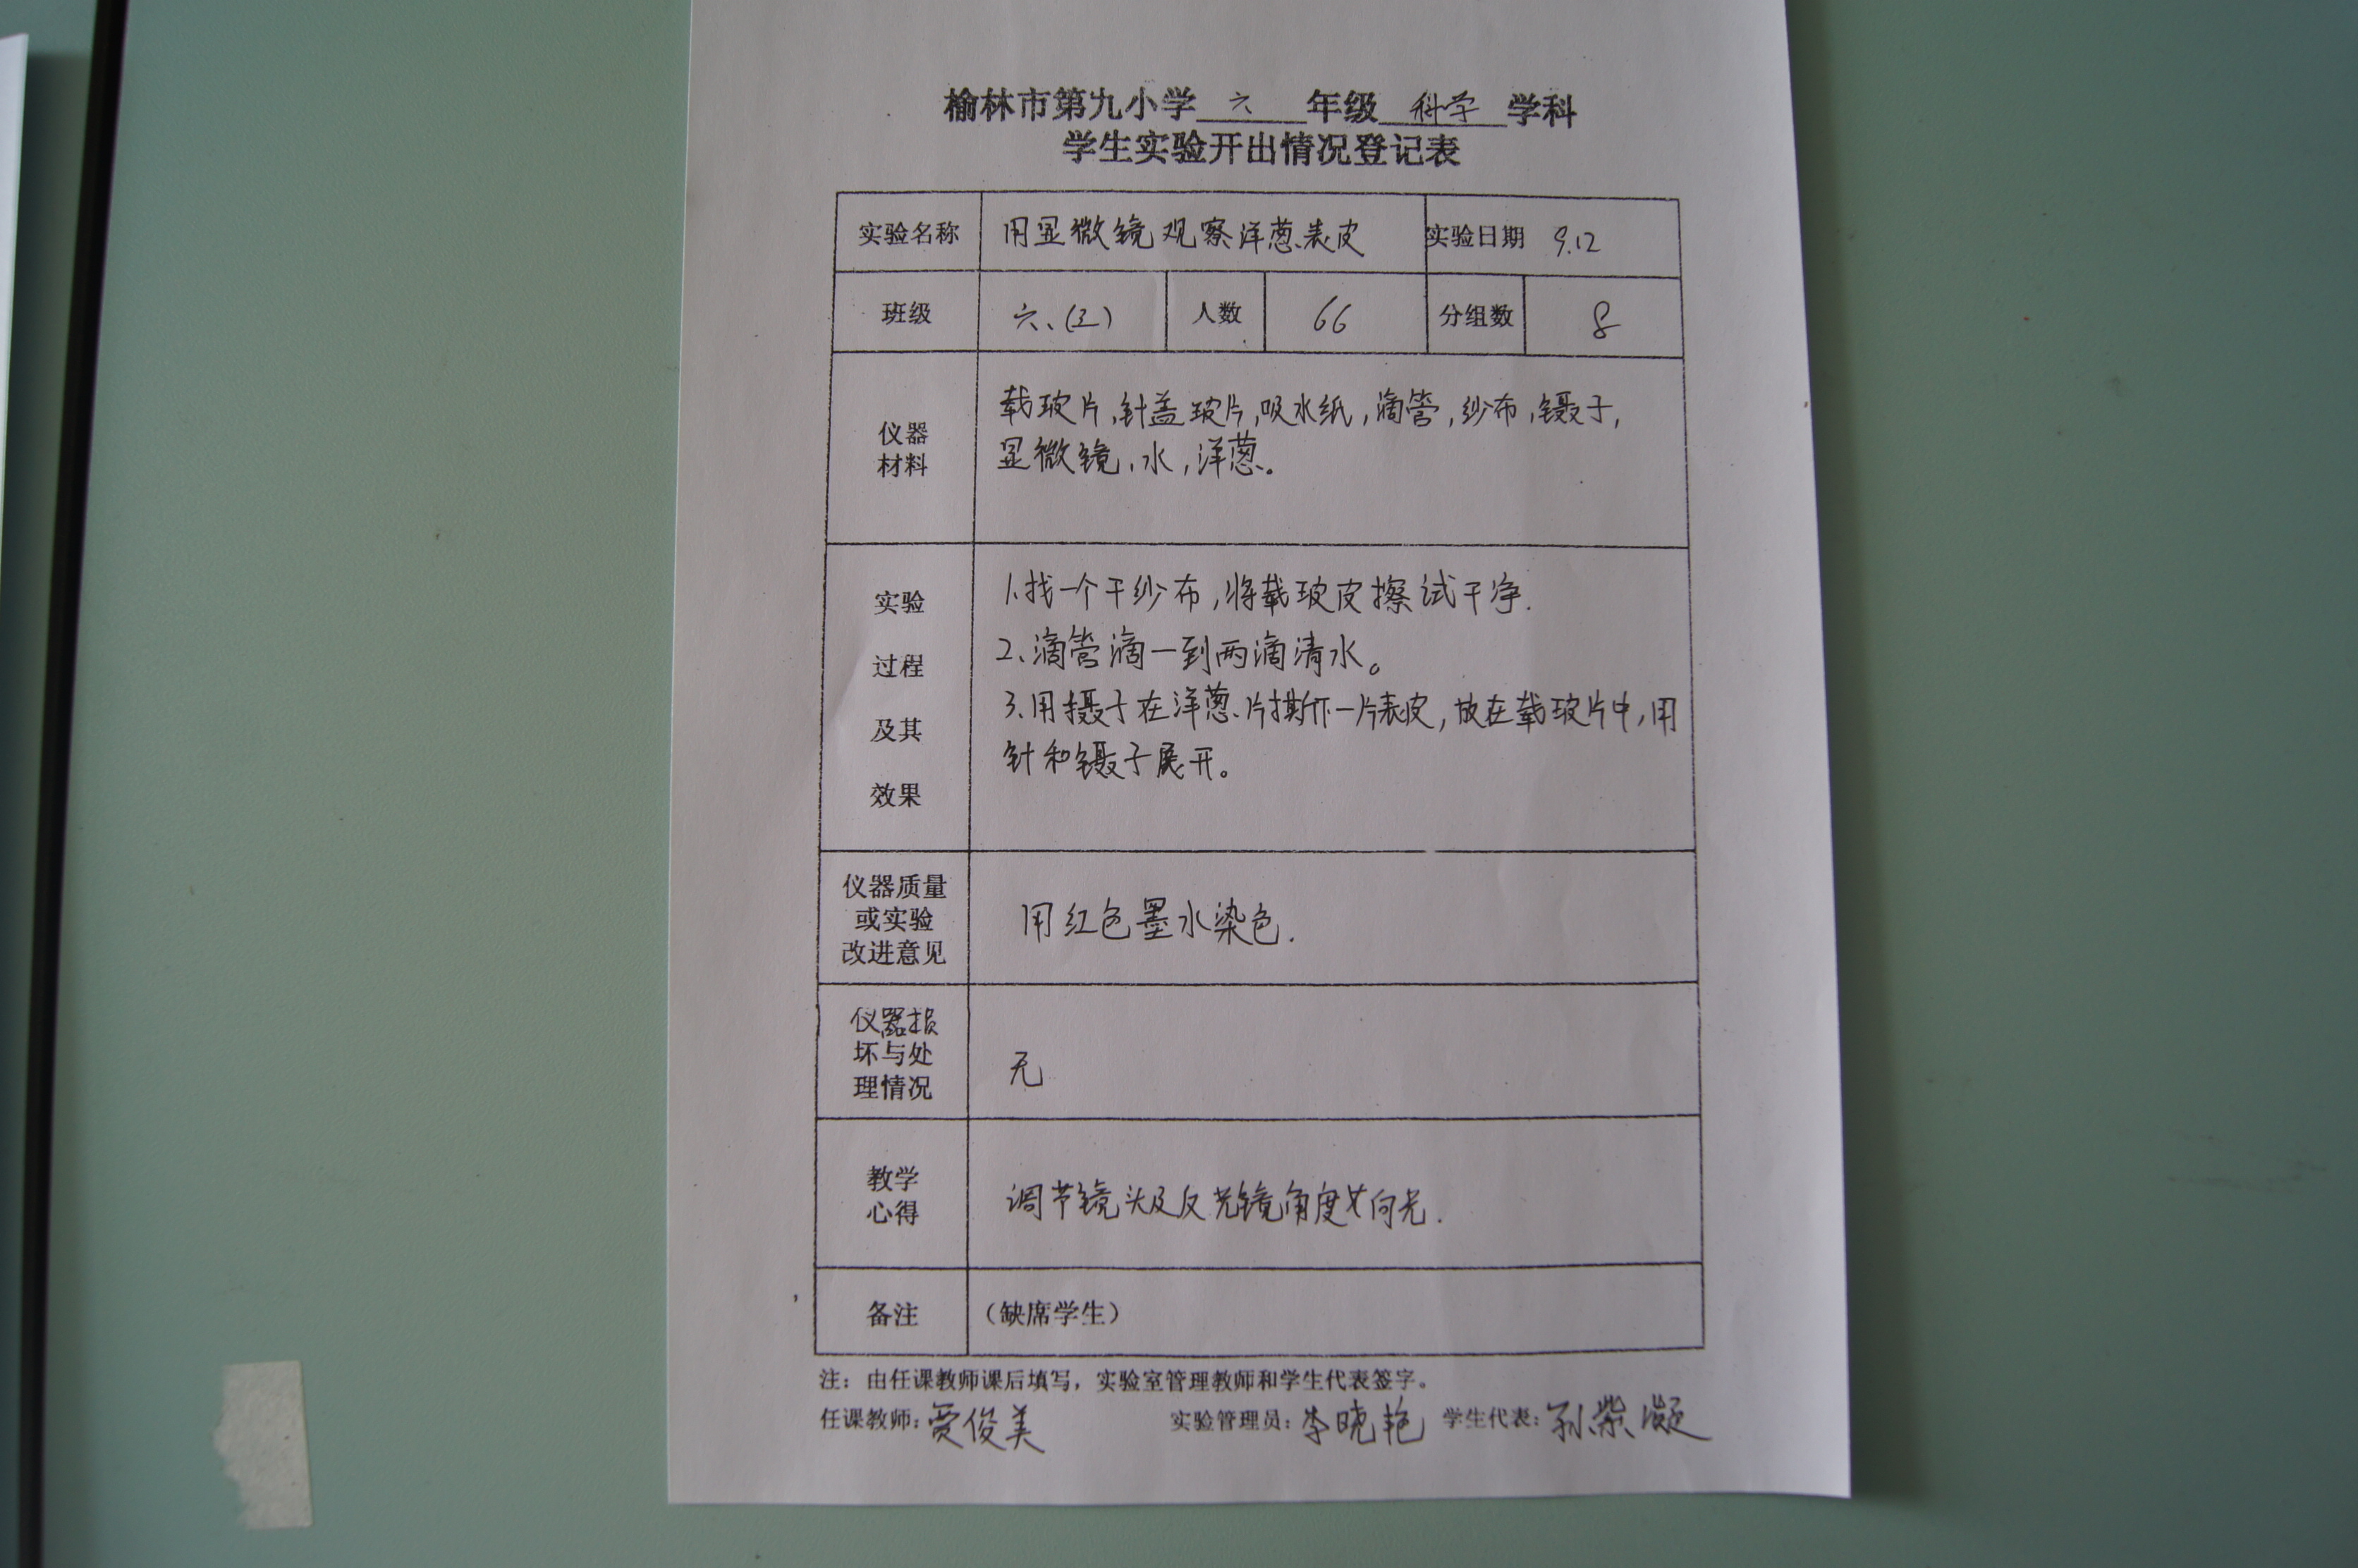 榆林市第九小学 六 年级 科学 学科
学生实验开出情况登记表
实验名称 用显微镜观察洋葱表皮 实验日期 9.12
班级 六、(3) 人数 66 分组数 8
仪器
材料
载玻片,针盖玻片,吸水纸,滴管,纱布,镊子,
显微镜,水,洋葱。
实验
过程
及其
效果
1.找一个干纱布,将载玻皮擦试干净.
2、滴管滴一到两滴清水。
3.用摄子在洋葱片撕下一片表皮,放在载玻片中,用
针和镊子展开。
仪器质量
或实验
改进意见
用红色墨水染色.
仪器损
坏与处
理情况
无
教学
心得
调节镜头及反光镜角度 向光.
备注 (缺席学生)
注:由任课教师课后填写,实验室管理教师和学生代表签字。
任课教师:贾俊美 实验管理员:李晓艳 学生代表:孙紫凝